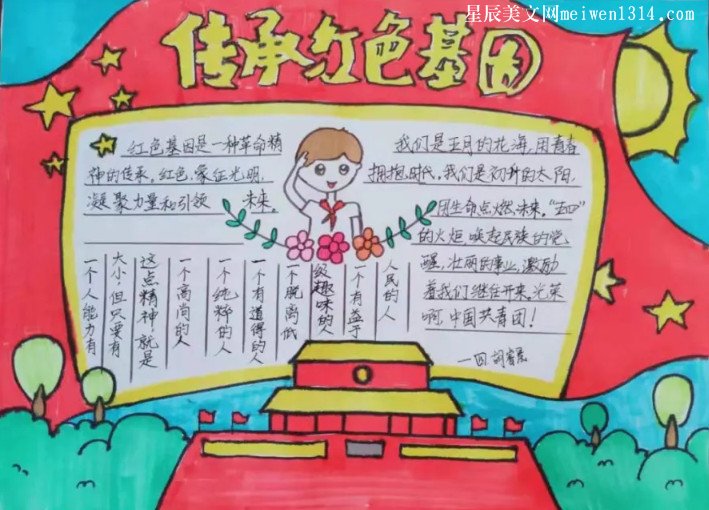 星辰美文网meiwen1314.com
传承红色基因
红色基因是一种革命精
神的传承,红色,象征光明,
凝聚力量和引领 未来。
我们是五月的花海,用青春
拥抱时代,我们是初升的太阳,
用生命点燃未来。“五四”
的火炬,唤起民族的觉
醒,壮丽的事业,激励
着我们继往开来。光荣
啊,中国共青团!
一个人能力有
大小,但只要有
这点精神,就是
一个高尚的人
一个纯粹的人
一个有道得的人
一个脱离低
级趣味的人
一个有益于
人民的人
一四.胡